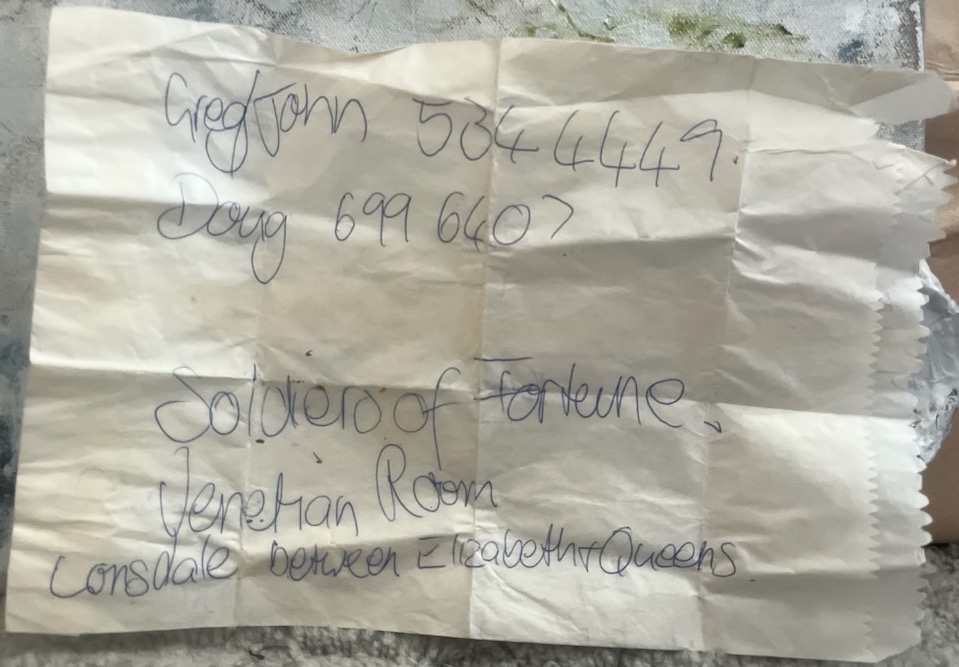 Greg/John 534 4449.
Doug 699 6407
Soldiers of Fortune.
Venetian Room
Lonsdale between Elizabeth + Queens